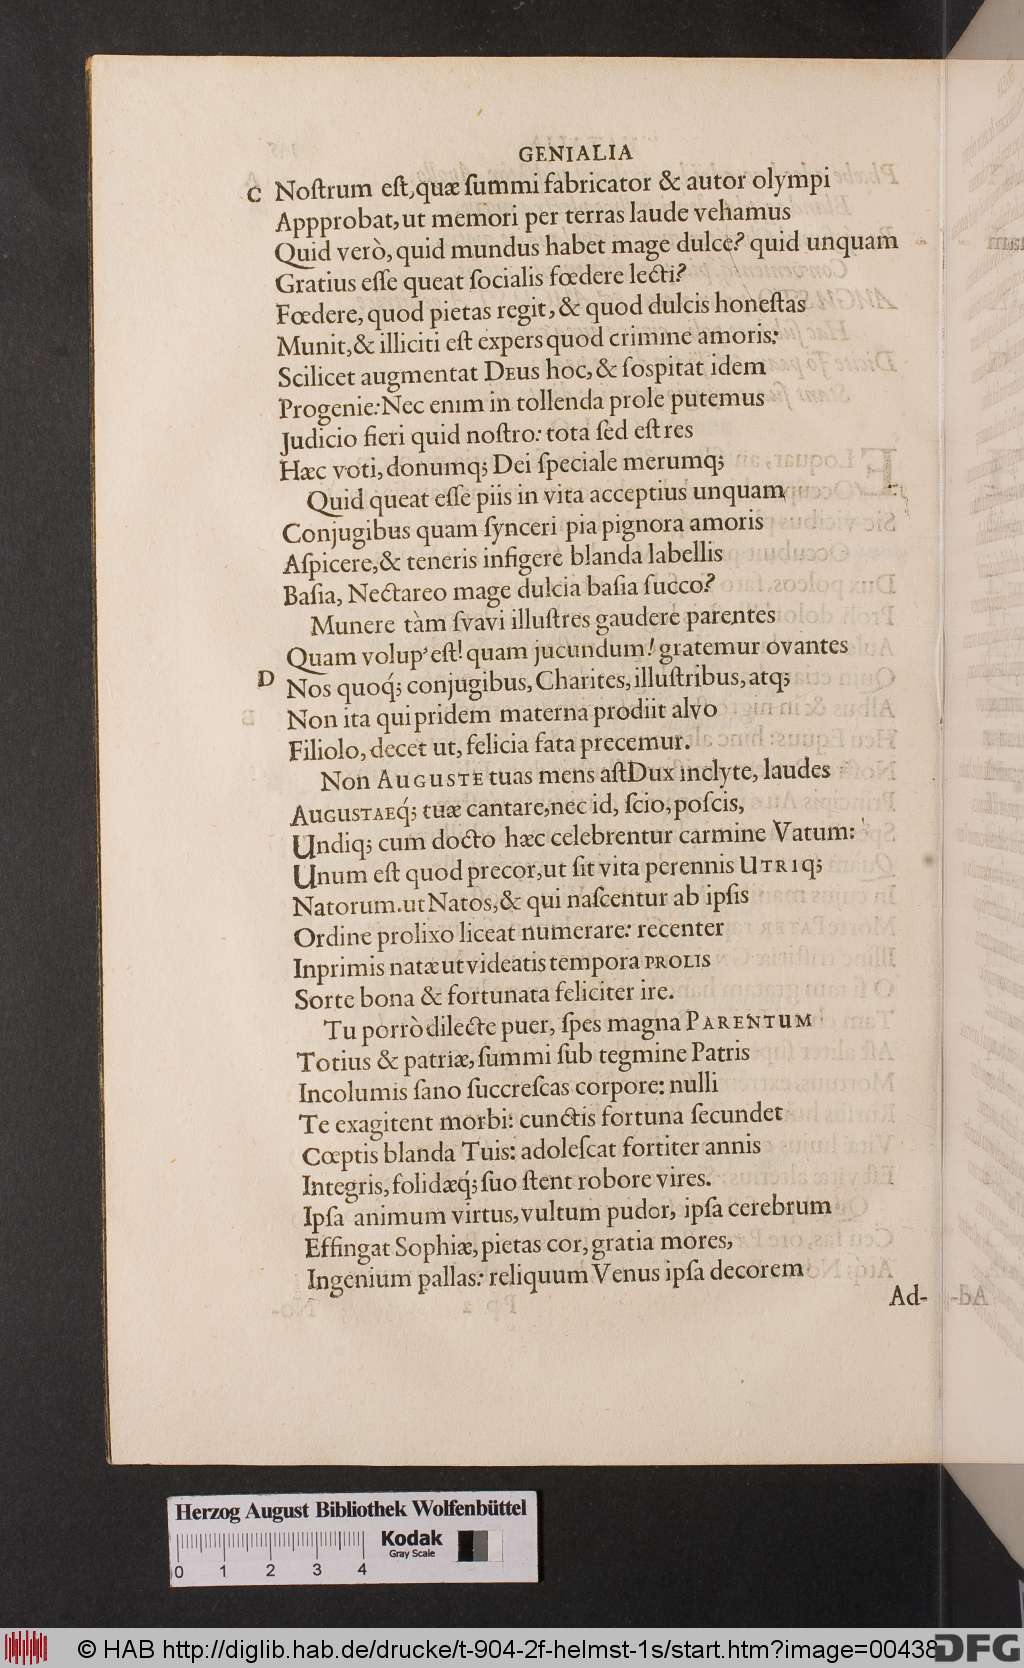 GENIALIA
C Noſtrum eſt, quæ ſummi fabricator & autor olympi
Appprobat, ut memori per terras laude vehamus
Quid verò, quid mundus habet mage dulce? quid unquam
Gratius eſſe queat ſocialis fœdere lecti?
Fœdere, quod pietas regit, & quod dulcis honeſtas
Munit, & illiciti eſt expers quod crimine amoris;
Scilicet augmentat DEUS hoc, & ſoſpitat idem
Progenie: Nec enim in tollenda prole putemus
Judicio fieri quid noſtro: tota ſed eſt res
Hæc voti, donumq; Dei ſpeciale merumq;
Quid queat eſſe piis in vita acceptius unquam
Conjugibus quam ſynceri pia pignora amoris
Aſpicere, & teneris infigere blanda labellis
Baſia, Nectareo mage dulcia baſia ſucco?
Munere tàm ſvavi illuſtres gaudere parentes
Quam volup' eſt! quam jucundum! gratemur ovantes
D Nos quoq́; conjugibus, Charites, illuſtribus, atq;
Non ita qui pridem materna prodiit alvo
Filiolo, decet ut, felicia fata precemur.
Non AUGUSTE tuas mens aſt Dux inclyte, laudes
AUGUSTAEq́; tuæ cantare, nec id, ſcio, poſcis,
Undiq; cum docto hæc celebrentur carmine Vatum:
Unum eſt quod precor, ut ſit vita perennis UTRIq;
Natorum. ut Natos, & qui naſcentur ab ipſis
Ordine prolixo liceat numerare: recenter
Inprimis natæ ut videatis tempora PROLIS
Sorte bona & fortunata feliciter ire.
Tu porrò dilecte puer, ſpes magna PARENTUM
Totius & patriæ, ſummi ſub tegmine Patris
Incolumis ſano ſuccreſcas corpore: nulli
Te exagitent morbi: cunctis fortuna ſecundet
Cœptis blanda Tuis: adoleſcat fortiter annis
Integris, ſolidæq́; ſuo ſtent robore vires.
Ipſa animum virtus, vultum pudor, ipſa cerebrum
Effingat Sophiæ, pietas cor, gratia mores,
Ingenium pallas: reliquum Venus ipſa decorem
Ad-
Herzog August Bibliothek Wolfenbüttel
Kodak
Gray Scale
0 1 2 3 4
© HAB http://diglib.hab.de/drucke/t-904-2f-helmst-1s/start.htm?image=00438
DFG